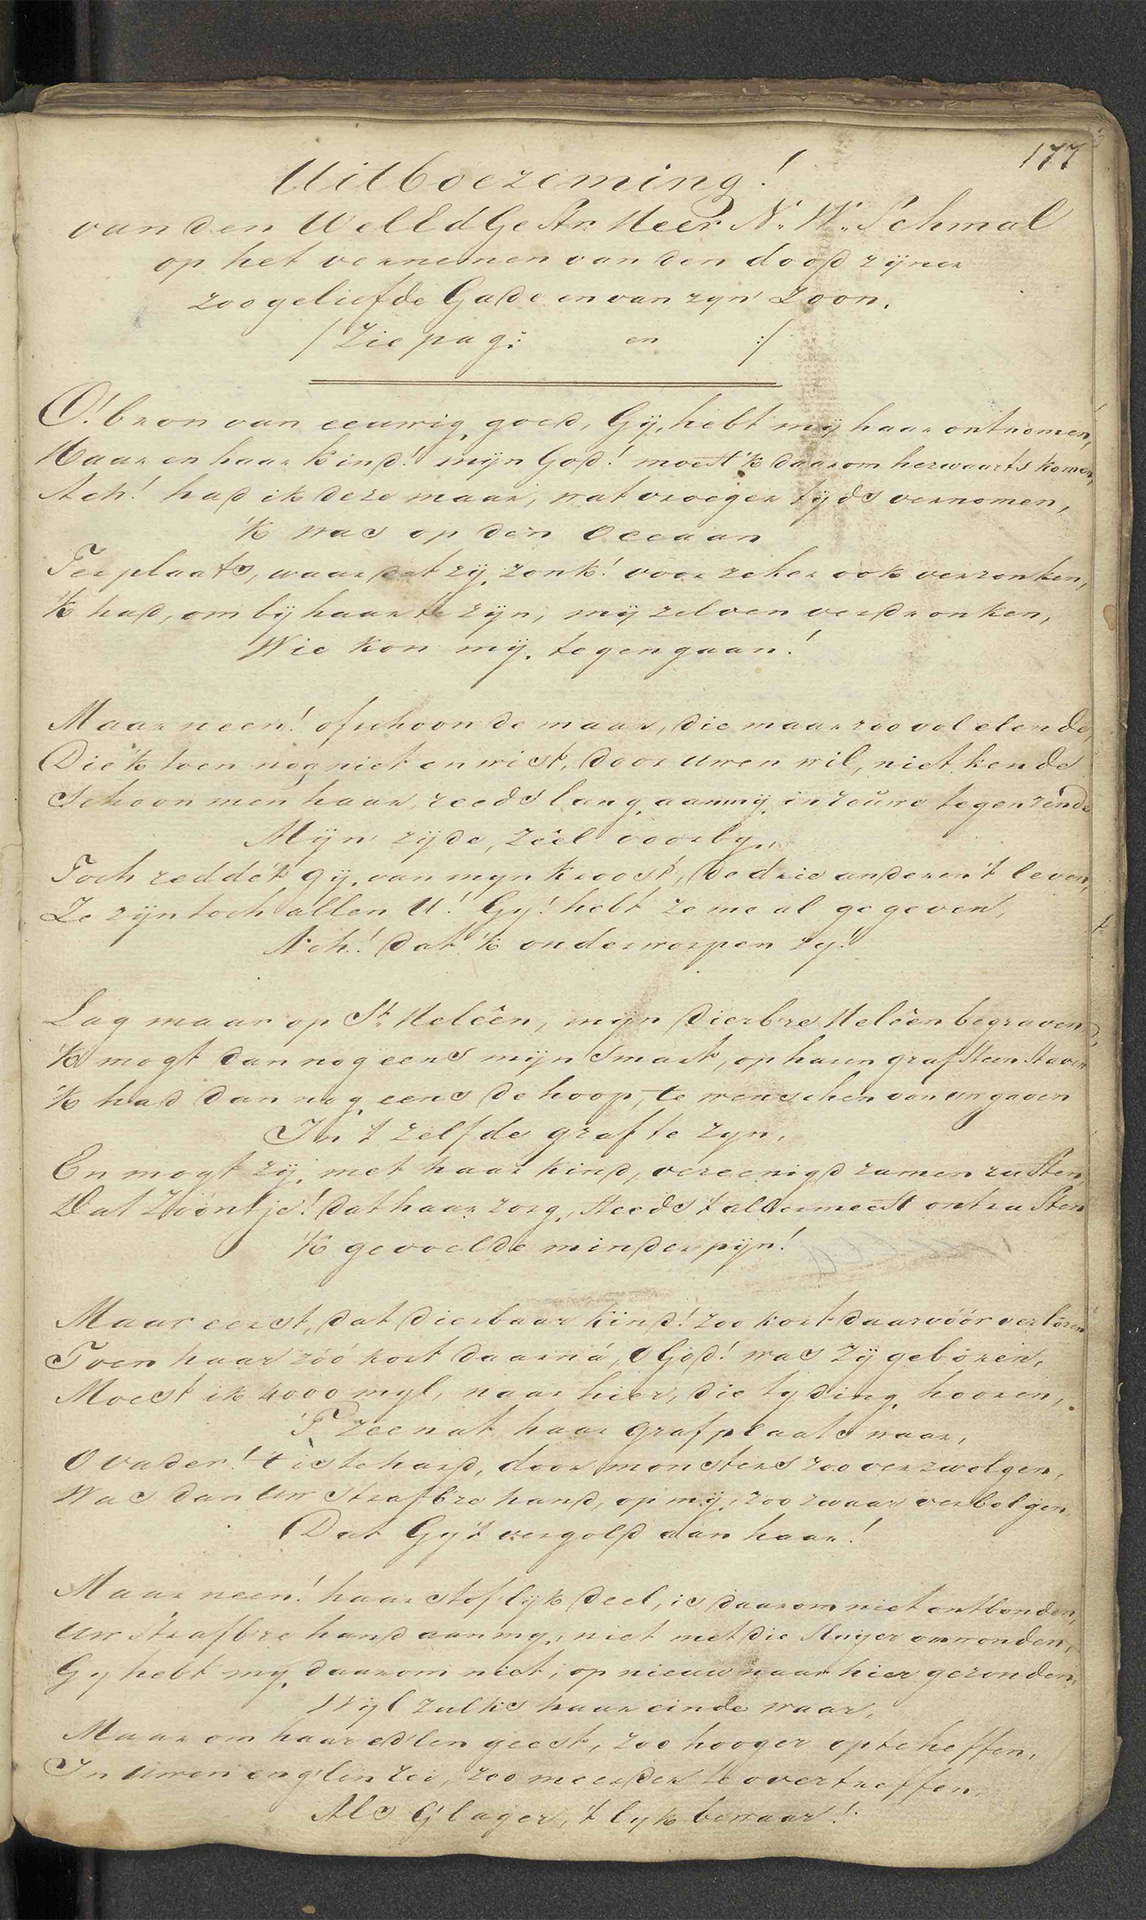 177
Uitboezeming!
van den WelEdGestr Heer N. W. Schmal
op het vernemen van den dood zijner
zoo geliefde Gade en van zyn' Zoon.
/ Zie pag: en :/
O! bron van eeuwig goed, Gij, hebt mij haar ontnomen,
Haar en haar kind! mijn God! moest 'k daarom herwaarts komen,
Ach! had ik deze maar, wat vroeger tijds vernomen,
'k was op den Oceaan
Ter plaats, waar dat zij, zonk! voor zeker ook verzonken,
'k had, om bij haar te zijn, mij zelven verdronken,
Wie kon mij, tegengaan!
Maar neen! ofschoon de maar, die maar zoo vol elende,
Die 'k toen nog niet en wist, door uwen wil, niet kende
Schoon men haar, reeds lang, aan mij, in rouwe tegen zende
Mijn' zijde, zeil voorby,
Toch reddet gij, van mijn kroost, de drie anderen 't leven,
Ze zijn toch allen U! Gy! hebt ze me al gegeven,
Ach! dat 'k onderworpen zy!
Lag maar op St. Heleên, mijn dierbre Heleên begraven,
'k mogt dan nog eens mijn smart, op haren grafsteen staven
'k had dan nog, eens de hoop, te wenschen van uw gaven
In 't zelfde graf te zyn,
En mogt zij, met haar kind, vereenigd zamen rusten,
Dat Zoontje! dat haar zorg, steeds 't allermeest ontrusten
'k gevoelde minder pijn!
Maar eerst, dat dierbaar kind! zoo kort daarvóór verloren
Toen haar zóó kort daarná, o God! was zij geboren,
Moest ik 4000 myl, naar hier, die tyding, hooren,
'T zeenat haar grafplaats waar,
O vader! 't is te hard, door monsters zoo verzwolgen,
Was dan uw strafbre hand, op mij, zoo zwaar verbolgen
Dat Gij 't vergold aan haar!
Maar neen! haar stoflijk deel, is daarom niet ontbonden,
Uw strafbre hand aan my, niet met die sluyer omwonden,
Gy hebt my, daarom niet, op nieuw naar hier gezonden,
Wijl zulks haar einde waar,
Maar om haar edlen geest, zoo hooger op te heffen,
In Uwen eng'len rei, zoo meerder te overtreffen,
Als G' lager, 't lyk bewaar!